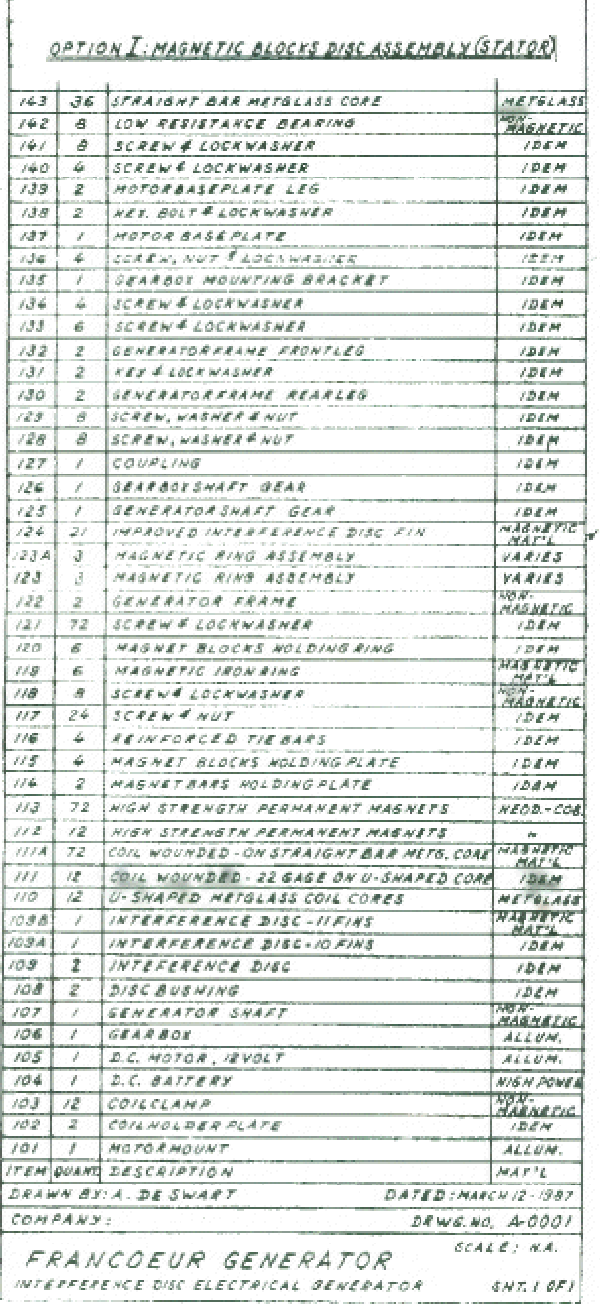 OPTION I: MAGNETIC BLOCKS DISC ASSEMBLY (STATOR)
143 36 STRAIGHT BAR METGLASS CORE METGLASS
142 8 LOW RESISTANCE BEARING NON-MAGNETIC
141 8 SCREW & LOCKWASHER IDEM
140 4 SCREW & LOCKWASHER IDEM
139 2 MOTORBASEPLATE LEG IDEM
138 2 HEX. BOLT & LOCKWASHER IDEM
137 1 MOTOR BASE PLATE IDEM
136 4 SCREW, NUT & LOCKWASHER IDEM
135 1 GEARBOX MOUNTING BRACKET IDEM
134 4 SCREW & LOCKWASHER IDEM
133 6 SCREW & LOCKWASHER IDEM
132 2 GENERATORFRAME FRONTLEG IDEM
131 2 KEY & LOCKWASHER IDEM
130 2 GENERATORFRAME REARLEG IDEM
129 8 SCREW, WASHER & NUT IDEM
128 8 SCREW, WASHER & NUT IDEM
127 1 COUPLING IDEM
126 1 GEARBOXSHAFT GEAR IDEM
125 1 GENERATORSHAFT GEAR IDEM
124 21 IMPROVED INTERFERENCE DISC FIN MAGNETIC MAT'L
123A 3 MAGNETIC RING ASSEMBLY VARIES
123 3 MAGNETIC RING ASSEMBLY VARIES
122 2 GENERATOR FRAME NON-MAGNETIC
121 72 SCREW & LOCKWASHER IDEM
120 6 MAGNET BLOCKS HOLDING RING IDEM
119 6 MAGNETIC IRON RING MAGNETIC MAT'L
118 8 SCREW & LOCKWASHER NON-MAGNETIC
117 24 SCREW & NUT IDEM
116 4 REINFORCED TIE BARS IDEM
115 4 MAGNET BLOCKS HOLDING PLATE IDEM
114 2 MAGNETBARS HOLDING PLATE IDEM
113 72 HIGH STRENGTH PERMANENT MAGNETS NEOD.-COB.
112 12 HIGH STRENGTH PERMANENT MAGNETS "
111A 72 COIL WOUNDED - ON STRAIGHT BAR METG. CORE MAGNETIC MAT'L
111 12 COIL WOUNDED - 22 GAGE ON U-SHAPED CORE IDEM
110 12 U-SHAPED METGLASS COIL CORES METGLASS
109B 1 INTERFERENCE DISC - 11 FINS MAGNETIC MAT'L
109A 1 INTERFERENCE DISC - 10 FINS IDEM
109 2 INTEFERENCE DISC IDEM
108 2 DISC BUSHING IDEM
107 1 GENERATOR SHAFT NON-MAGNETIC
106 1 GEARBOX ALLUM.
105 1 D.C. MOTOR, 12 VOLT ALLUM.
104 1 D.C. BATTERY HIGH POWER
103 12 COILCLAMP NON-MAGNETIC
102 2 COILHOLDER PLATE IDEM
101 1 MOTORMOUNT ALLUM.
ITEM QUANT DESCRIPTION MAT'L
DRAWN BY: A. DE SWART DATED: MARCH 12-1987
COMPANY: DRWG. NO. A-0001
SCALE: N.A.
FRANCOEUR GENERATOR
INTERFERENCE DISC ELECTRICAL GENERATOR SHT. 1 OF 1